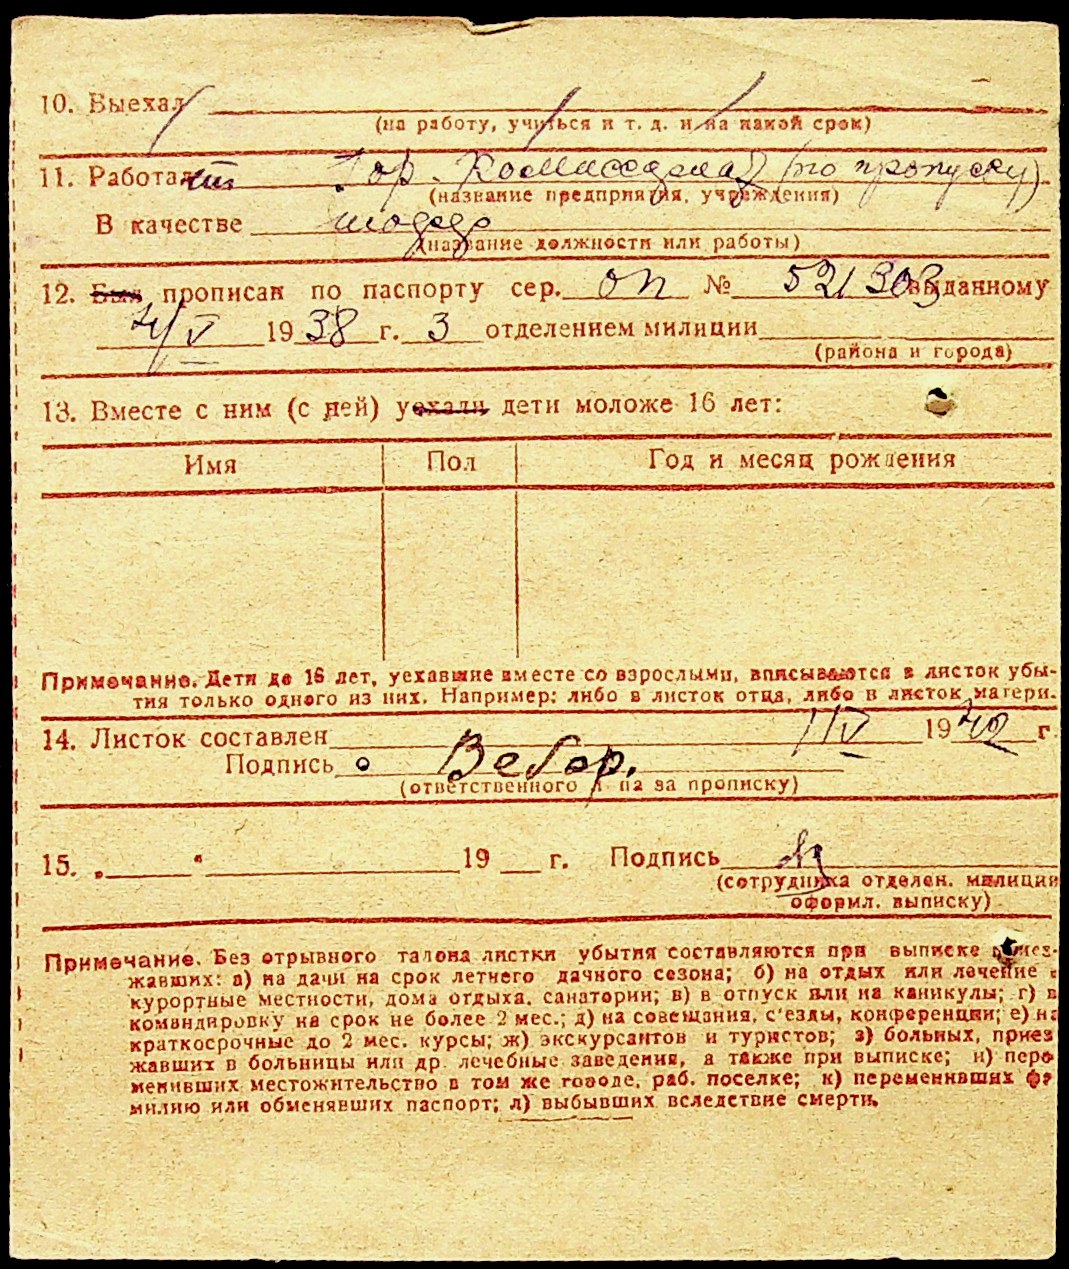 10. Выехал
(на работу, учиться и т. д. и на какой срок)
11. Работает Гор. Комиссариат (по пропуску)
(название предприятия, учреждения)
В качестве
(название должности или работы)
12. Был прописан по паспорту сер. ОП № 521303 выданному
4/V 1938 г. 3 отделением милиции
(района и города)
13. Вместе с ним (с ней) уехали дети моложе 16 лет:
Имя Пол Год и месяц рождения
Примечание. Дети до 16 лет, уехавшие вместе со взрослыми, вписываются в листок убы-
тия только одного из них. Например: либо в листок отца, либо в листок матери.
14. Листок составлен 1/IV 1942 г.
Подпись
(ответственного лица за прописку)
15. „ “ 19 г. Подпись
(сотрудника отделен. милиции
оформл. выписку)
Примечание. Без отрывного талона листки убытия составляются при выписке выез-
жавших: а) на дачи на срок летнего дачного сезона; б) на отдых или лечение в
курортные местности, дома отдыха, санатории; в) в отпуск или на каникулы; г) в
командировку на срок не более 2 мес.; д) на совещания, с'езды, конференции; е) на
краткосрочные до 2 мес. курсы; ж) экскурсантов и туристов; з) больных, приез
жавших в больницы или др. лечебные заведения, а также при выписке; и) пере
менивших местожительство в том же городе, раб. поселке; к) переменивших фа
милию или обменявших паспорт; л) выбывших вследствие смерти.